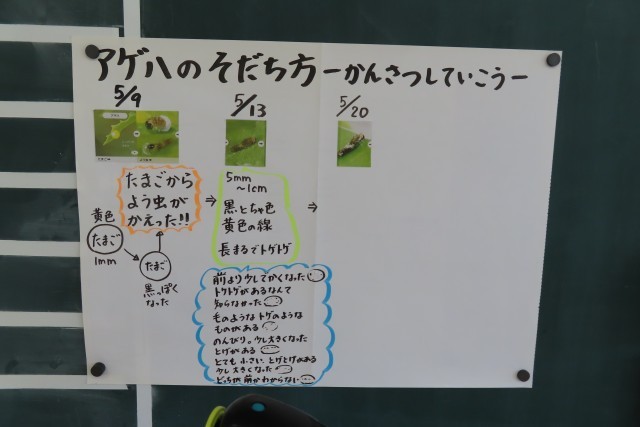 アゲハのそだち方ーかんさつしていこうー
5/9
5/13
5/20
たまごから
よう虫が
かえった!!
黄色
たまご
1mm
たまご
黒っぽく
なった
5mm
〜1cm
黒とちゃ色
黄色の線
長まるでトゲトゲ
前より少してかくなった
トゲトゲがあるなんて
知らなかった
毛のようなトゲのような
ものがある
のんびり。少し大きくなった
とげがある
とても小さい とげとげがある
少し大きくなった
どっちが前かわからない